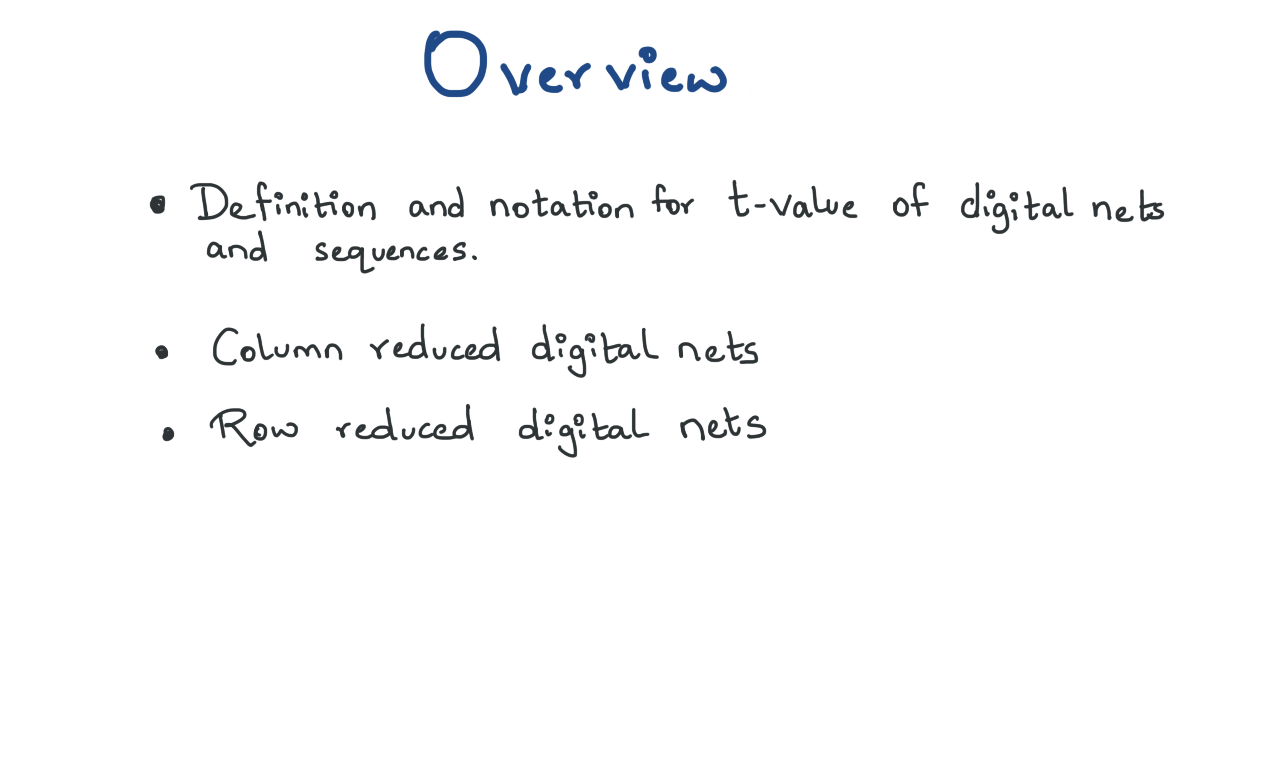 Overview
• Definition and notation for t-value of digital nets
and sequences.
• Column reduced digital nets
• Row reduced digital nets